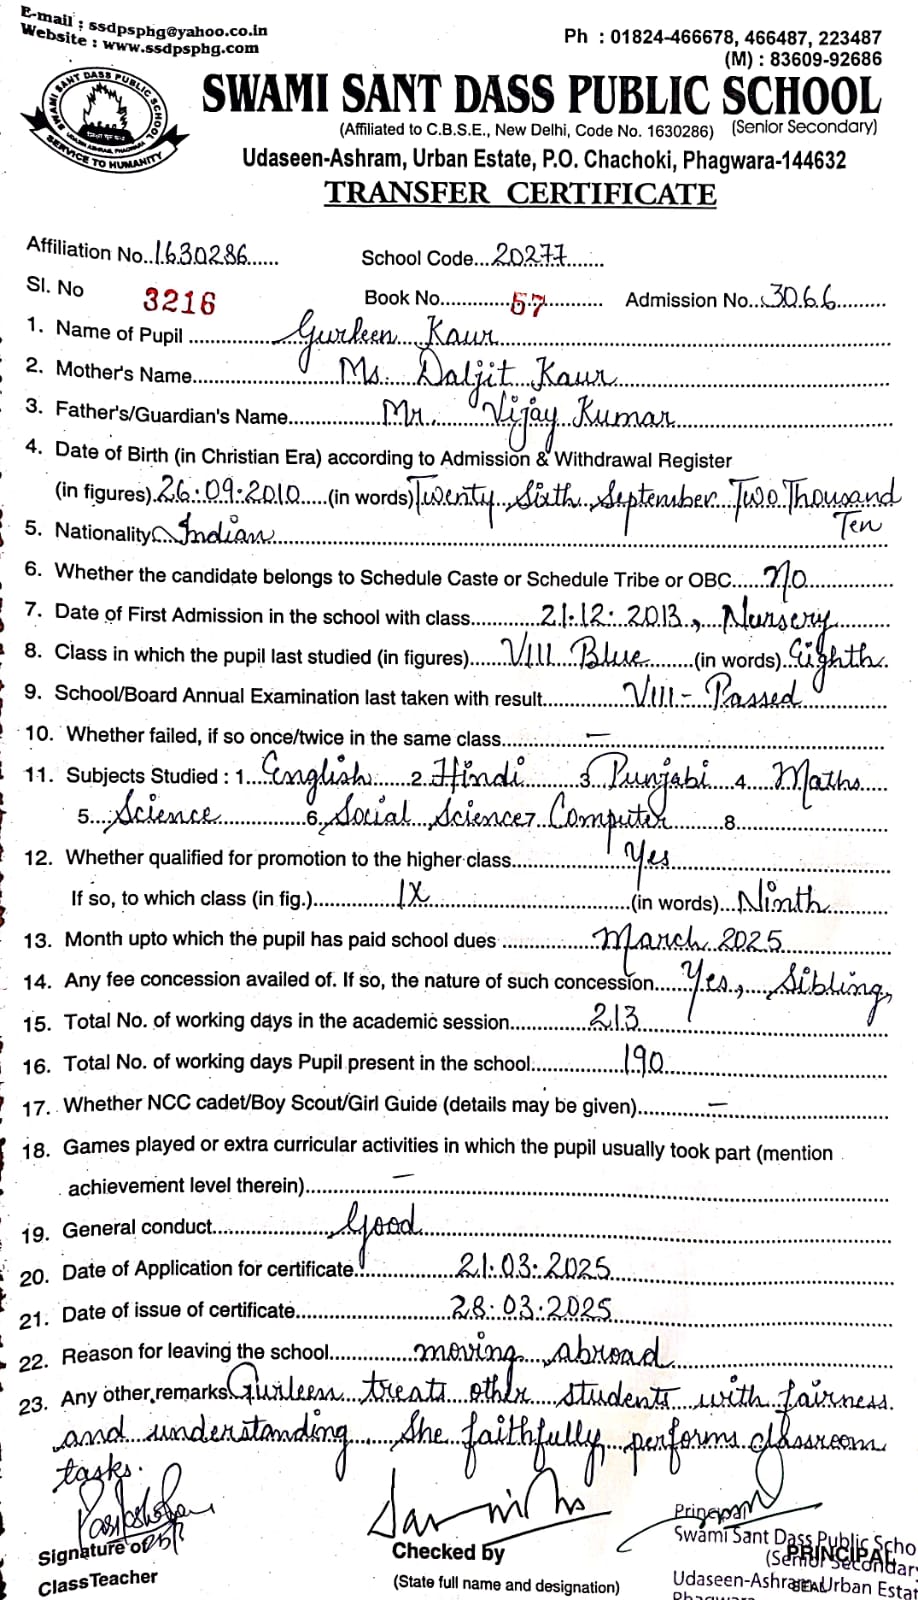 E-mail : ssdpsphg@yahoo.co.in
Website : www.ssdpsphg.com
Ph : 01824-466678, 466487, 223487
(M) : 83609-92686
SWAMI SANT DASS PUBLIC SCHOOL
SWAMI SANT DASS PUBLIC SCHOOL
SERVICE TO HUMANITY
(Affiliated to C.B.S.E., New Delhi, Code No. 1630286) (Senior Secondary)
Udaseen-Ashram, Urban Estate, P.O. Chachoki, Phagwara-144632
TRANSFER CERTIFICATE
Affiliation No..1630286...... School Code...20277.......
Sl. No 3216 Book No............57........... Admission No...3066.........
1. Name of Pupil ...............Gurleen Kaur...............
2. Mother's Name...............Ms. Daljit Kaur...............
3. Father's/Guardian's Name...............Mr. Vijay Kumar...............
4. Date of Birth (in Christian Era) according to Admission & Withdrawal Register
(in figures).26.09.2010.....(in words)Twenty Sixth September Two Thousand
Ten
5. Nationality Indian...............
6. Whether the candidate belongs to Schedule Caste or Schedule Tribe or OBC.....No...............
7. Date of First Admission in the school with class............21.12.2013, Nursery
8. Class in which the pupil last studied (in figures).....VIII Blue.......(in words)..Eighth.
9. School/Board Annual Examination last taken with result............VIII - Passed...............
10. Whether failed, if so once/twice in the same class...............—...............
11. Subjects Studied : 1...English.... 2.Hindi 3.Punjabi...4...Maths....
5....Science............6.Social Science 7 Computer.........8...............
12. Whether qualified for promotion to the higher class...............Yes...............
If so, to which class (in fig.)...............IX...............(in words)...Ninth.........
13. Month upto which the pupil has paid school dues ...............March 2025...............
14. Any fee concession availed of. If so, the nature of such concession.....Yes, Sibling,
15. Total No. of working days in the academic session............213...............
16. Total No. of working days Pupil present in the school...............190...............
17. Whether NCC cadet/Boy Scout/Girl Guide (details may be given)............—...............
18. Games played or extra curricular activities in which the pupil usually took part (mention
achievement level therein)...............—...............
19. General conduct...............Good...............
20. Date of Application for certificate...............21.03.2025...............
21. Date of issue of certificate...............28.03.2025...............
22. Reason for leaving the school...............moving abroad...............
23. Any other remarks Gurleen treats other students with fairness
and understanding. She faithfully performs classroom
tasks.
Signature of
Class Teacher
Checked by
(State full name and designation)
Principal
Swami Sant Dass Public Scho
(Senior Secondary
PRINCIPAL
Udaseen-Ashram, Urban Estat
SEAL